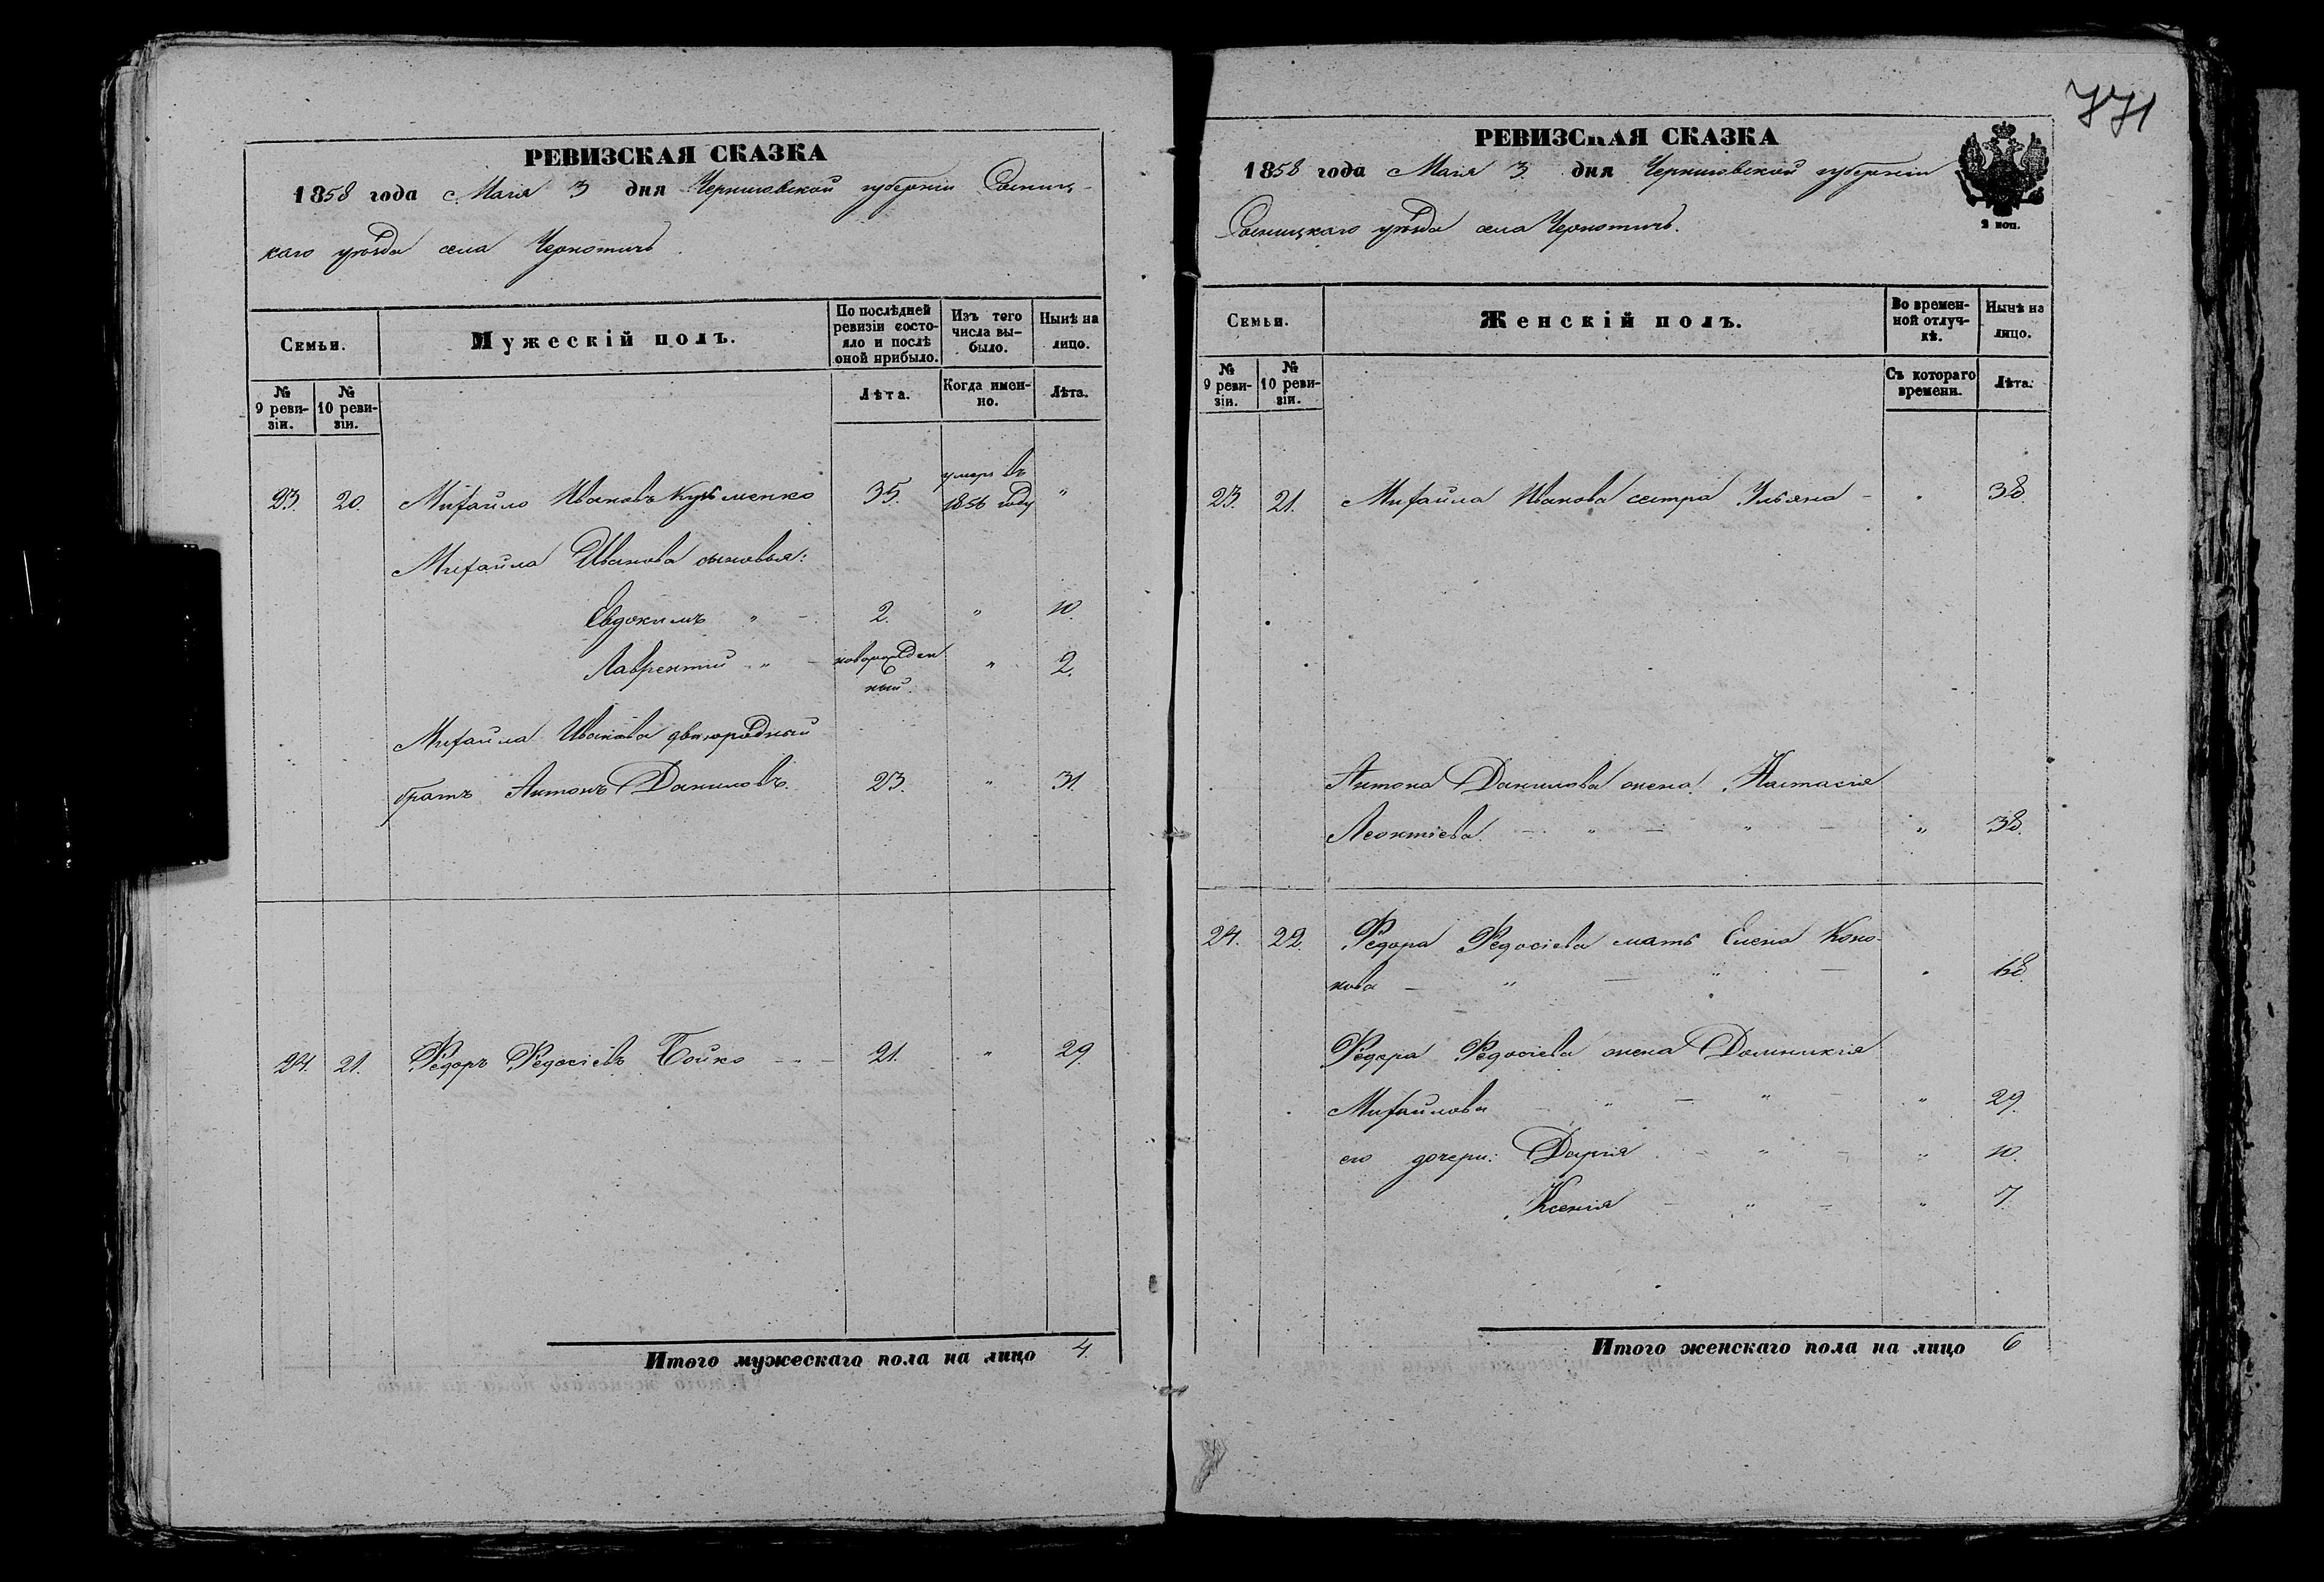 771
РЕВИЗСКАЯ СКАЗКА
1858 года Маія 3 дня Черниговской губерніи Сосниц-
каго уѣзда села Чернотичъ
Семьи. Мужескій полъ. По послѣдней ревизіи состояло и послѣ оной прибыло. Изъ того числа выбыло. Нынѣ на лицо.
№ 9 ревизіи. № 10 ревизіи. Лѣта. Когда именно. Лѣта.
умеръ въ
23. 20. Михайло Ивановъ Кузьменко 35. 1856 году "
Михайла Иванова сыновья:
Евдокимъ " - 2. " 10.
Лаврентій - " - новорожден " 2.
ный.
Михайла Иванова двоюродный
братъ Антонъ Даниловъ. 23. " 31.
24. 21. Ѳедоръ Ѳедосіевъ Бойко - " - 21. " 29
Итого мужескаго пола на лицо 4.
РЕВИЗСКАЯ СКАЗКА
1858 года Маія 3 дня Черниговской губерніи
Сосницкаго уѣзда села Чернотичъ.
2 коп.
Семьи. Женскій полъ. Во временной отлучкѣ. Нынѣ на лицо.
№ 9 ревизіи. № 10 ревизіи. Съ котораго времени. Лѣта.
23. 21. Михайла Иванова сестра Ульяна - " 38.
Антона Данилова жена Настасія
Леонтіева - " - " - " 38.
24. 22. Ѳедора Ѳедосіева мать Елена Коно-
нова - " - " - " 68.
Ѳедора Ѳедосіева жена Домникія
Михайлова - " - " - " 29.
его дочери: Дарія - " - " 10.
Ксенія - " - " 7.
Итого женскаго пола на лицо 6